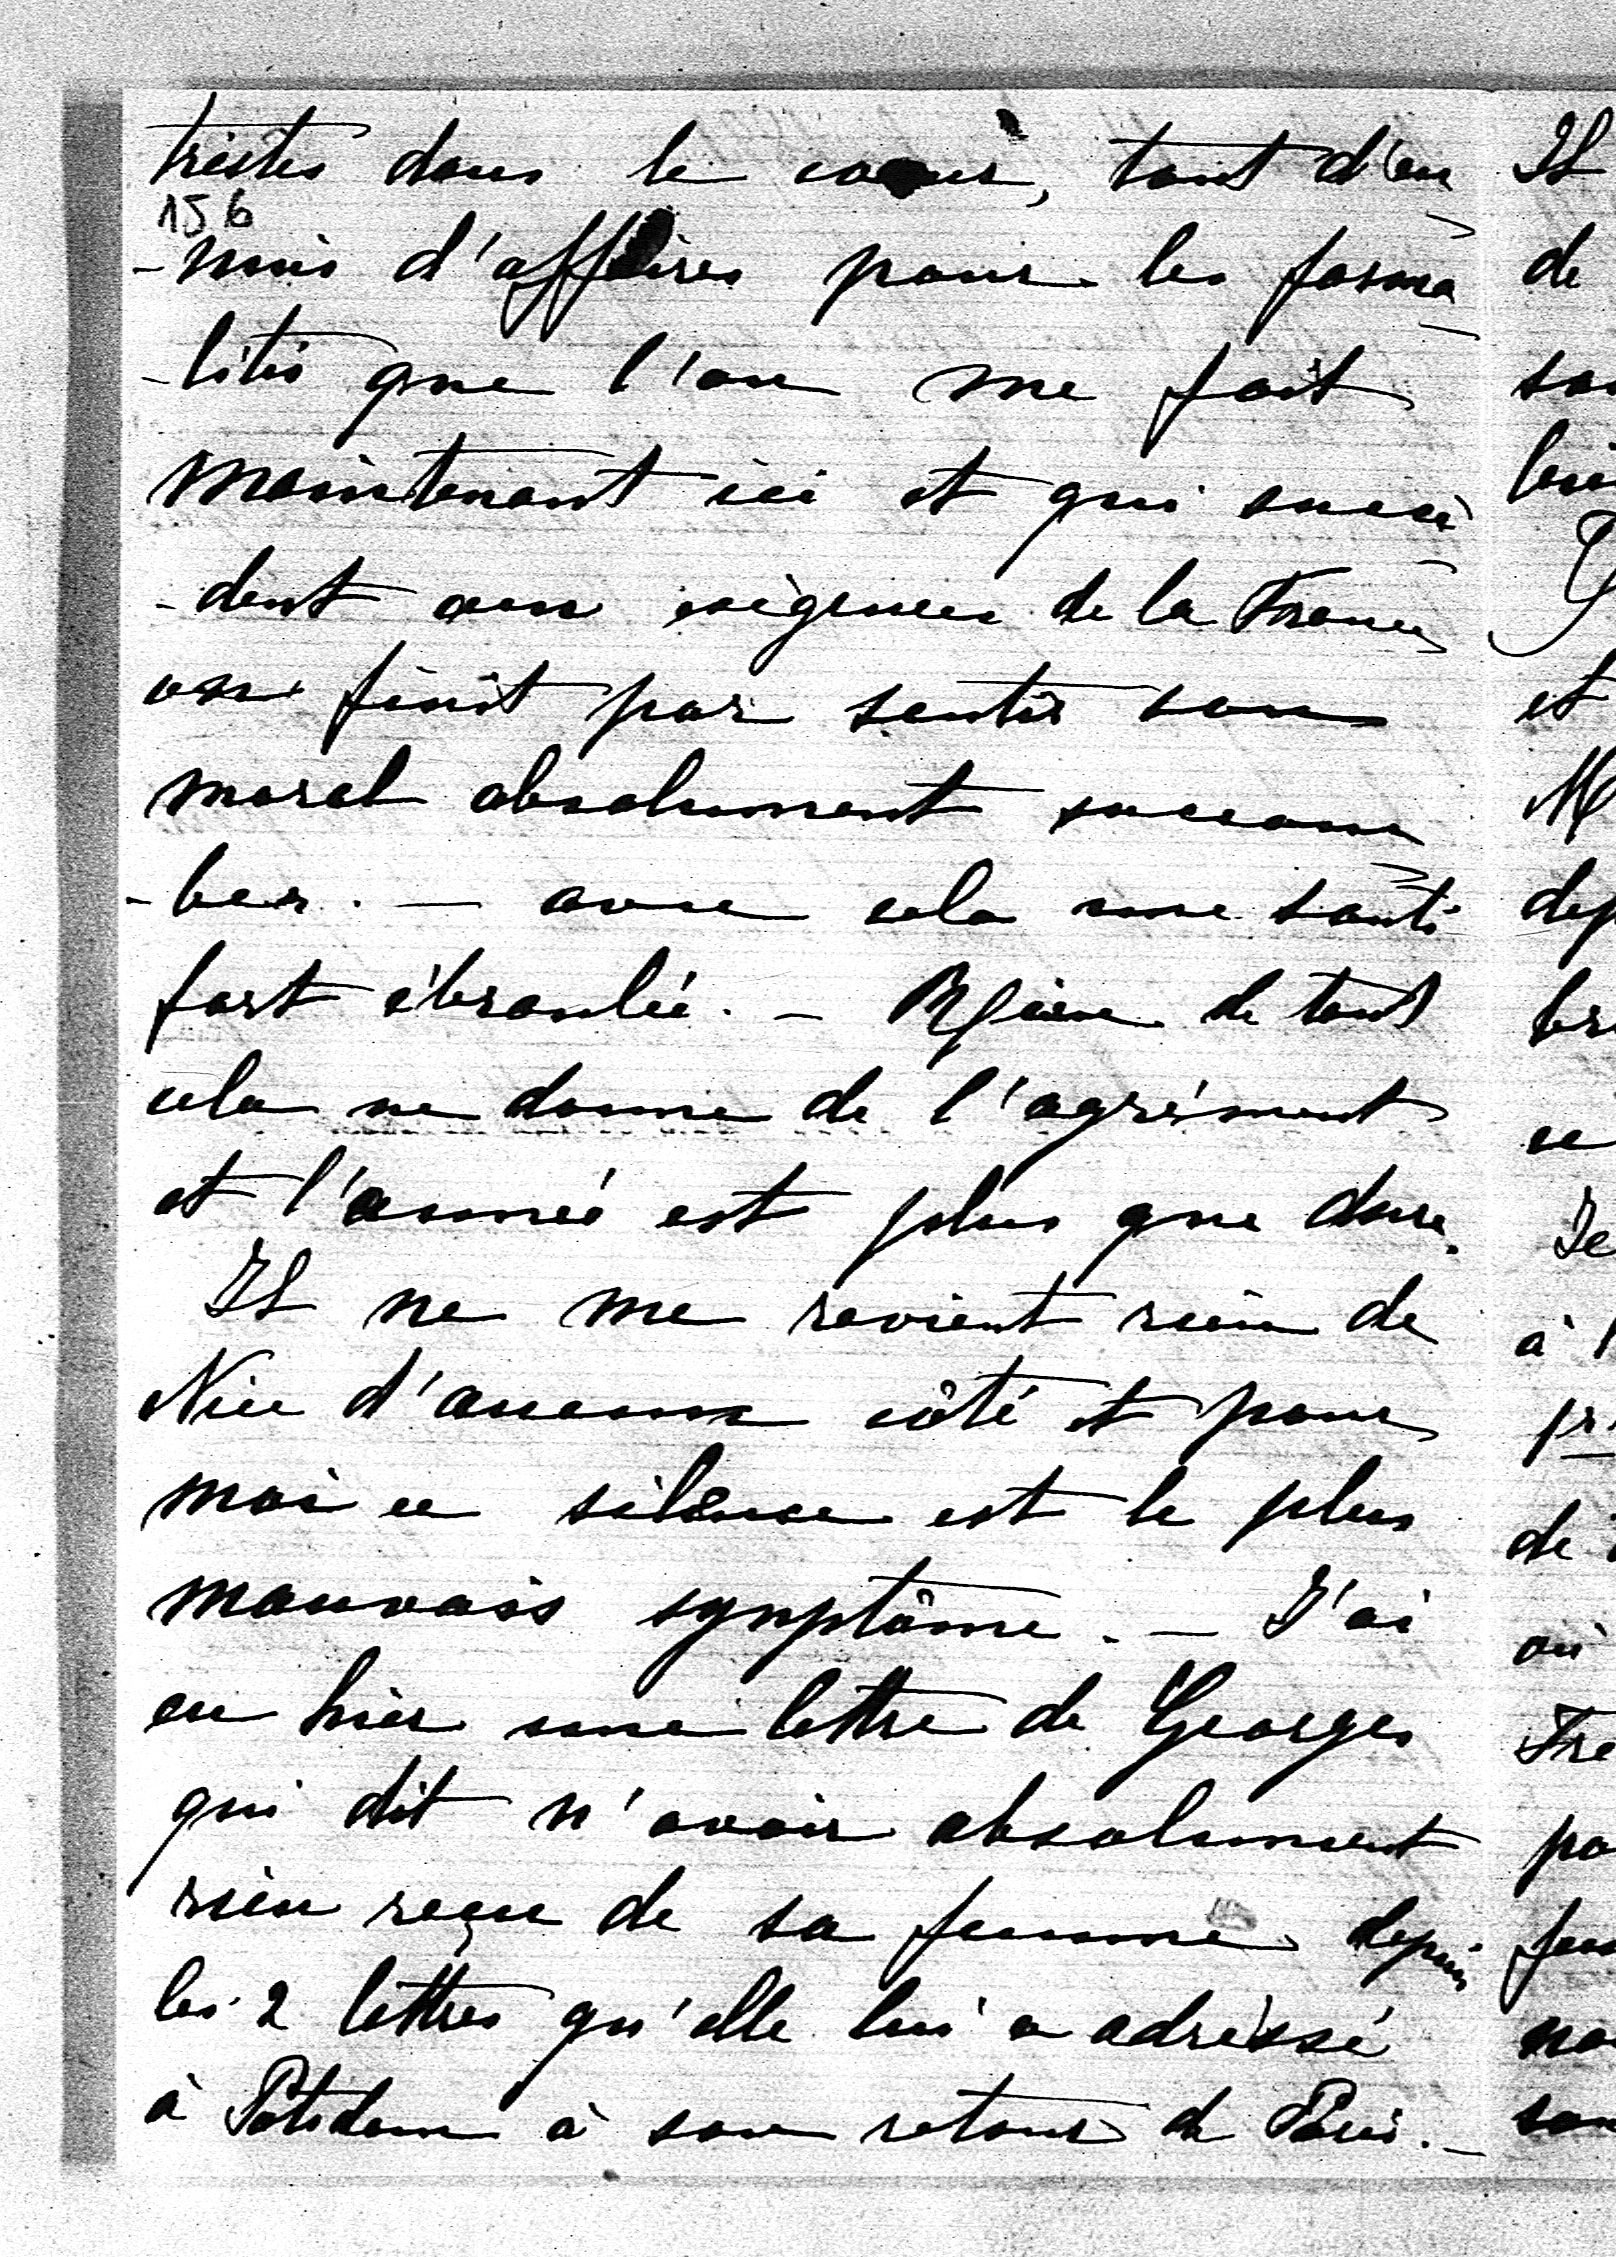 tristes dans le coeur, tant d'en
156
-nuis d'affaires pour les forma
-lités que l'on me fait
maintenant ici et qui succè
-dent aux exigences de la France
on finit par sentir son
moral absolument succom
-ber. — avec cela une santé
fort ébranlée. — Rien de tout
cela ne donne de l'agrément
et l'année est plus que dure.
Il ne me revient rien de
Nice d'aucun côté et pour
moi ce silence est le plus
mauvais symptôme. — J'ai
eu hier une lettre de Georges
qui dit n'avoir absolument
rien reçu de sa femme depuis
les 2 lettres qu'elle lui a adressé
à Potsdam à son retour de Paris. —
Il
de
et
ce
Je
à
de
où